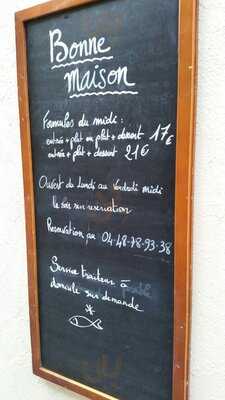 Bonne
maison
Formules du midi :
entrée + plat ou plat + dessert 17€
entrée + plat + dessert 21€
Ouvert du Lundi au Vendredi midi
le soir sur reservation
Reservation au 04-48-78-93-38
Service traiteur à
domicile sur demande